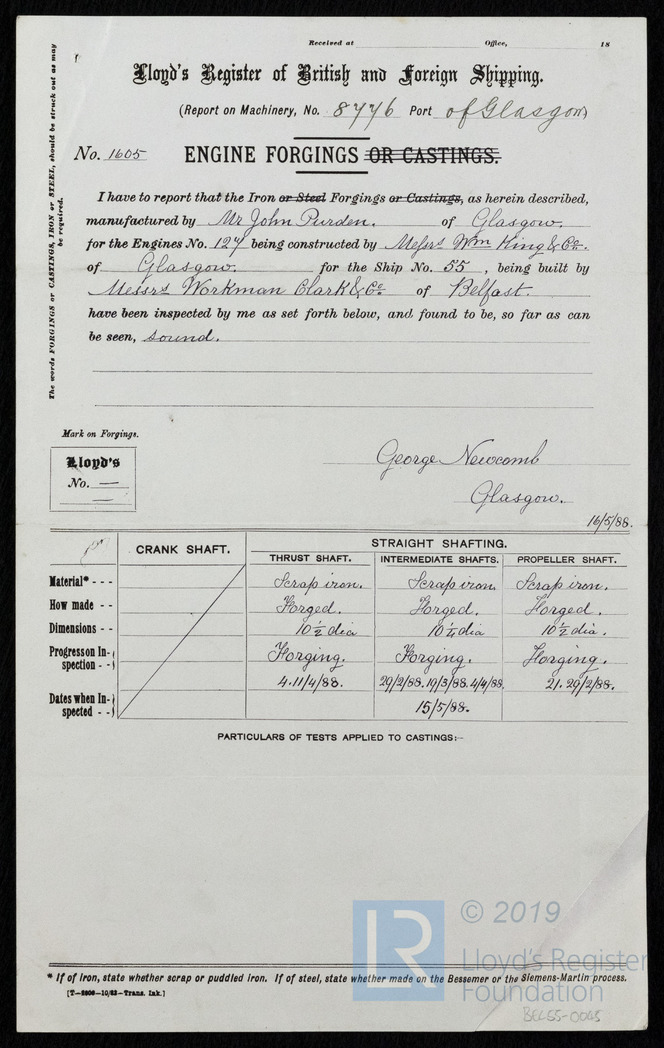 Received at Office, 18
Lloyd's Register of British and Foreign Shipping.
(Report on Machinery, No. 8776 Port of Glasgow)
No. 1605 ENGINE FORGINGS OR CASTINGS.
The words FORGINGS or CASTINGS, IRON or STEEL, should be struck out as may
be required.
I have to report that the Iron or Steel Forgings or Castings, as herein described,
manufactured by Mr John Purden. of Glasgow.
for the Engines No. 127 being constructed by Messrs Wm King & Co.
of Glasgow. for the Ship No. 55, being built by
Messrs Workman Clark & Co of Belfast.
have been inspected by me as set forth below, and found to be, so far as can
be seen, sound.
Mark on Forgings.
Lloyd's
No. —
—
George Newcomb
Glasgow.
16/5/88.
CRANK SHAFT. STRAIGHT SHAFTING.
THRUST SHAFT. INTERMEDIATE SHAFTS. PROPELLER SHAFT.
Material* - - - Scrap iron. Scrap iron. Scrap iron.
How made - - Forged. Forged. Forged.
Dimensions - - 10½ dia 10¼ dia 10½ dia.
Progress on In-
spection - - Forging. Forging. Forging.
4.11/4/88. 29/2/88. 19/3/88. 4/4/88. 21. 29/2/88.
Dates when In-
spected - - 15/5/88.
PARTICULARS OF TESTS APPLIED TO CASTINGS:—
* If of Iron, state whether scrap or puddled iron. If of steel, state whether made on the Bessemer or the Siemens-Martin process.
LR
© 2019
Lloyd's Register
Foundation
BEL55-0045